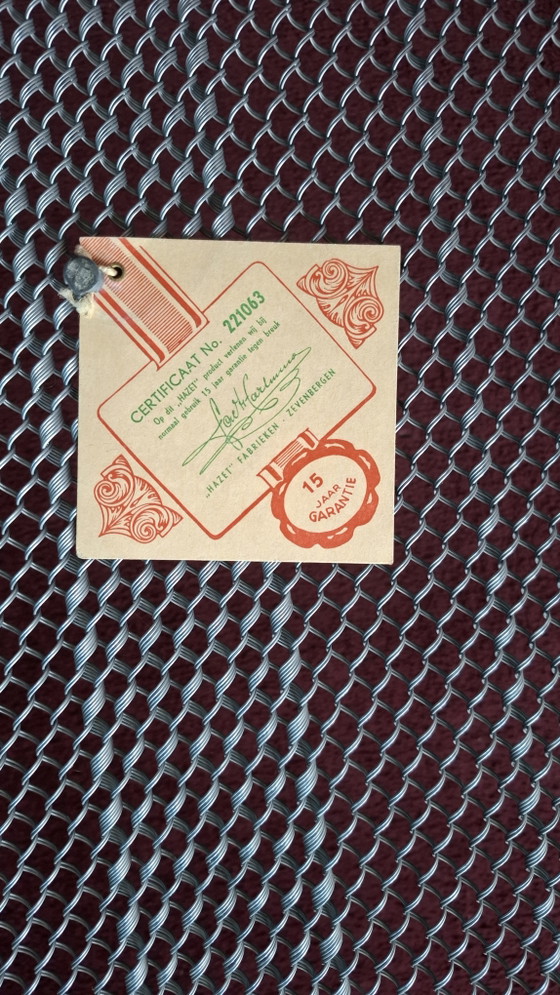 CERTIFICAAT No. 221063
Op dit „HAZET" product verlenen wij bij
normaal gebruik 15 jaar garantie tegen breuk
„HAZET" FABRIEKEN - ZEVENBERGEN
15
JAAR
GARANTIE